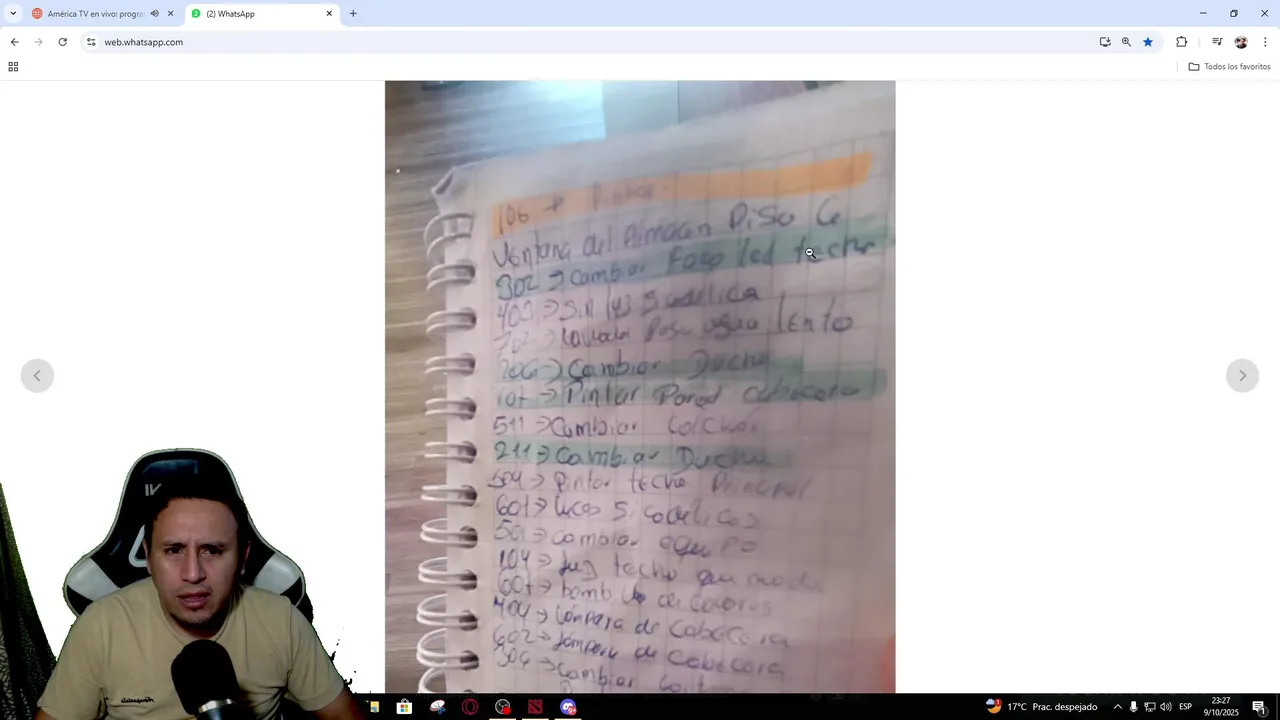 América TV en vivo: progra
(2) WhatsApp
web.whatsapp.com
Todos los favoritos
106 →
Ventana del Almacen Piso 6
302 → Cambiar Foco led techo
403 → Sin luz Sicodelica
702 → lavador Pasa agua lento
206 → Cambiar Ducha
107 → Pintar Pared Cabecera
511 → Cambiar Colchón
211 → Cambiar Ducha
504 → Pintar techo Principal
601 → luces Sicodelicas
501 → cambiar equipo
104 → luz techo quemada
607 → bombillo de colores
404 → lampara de cabecera
602 → lampara de cabecera
304 → cambiar
17°C Prac. despejado
ESP
23:27
9/10/2025